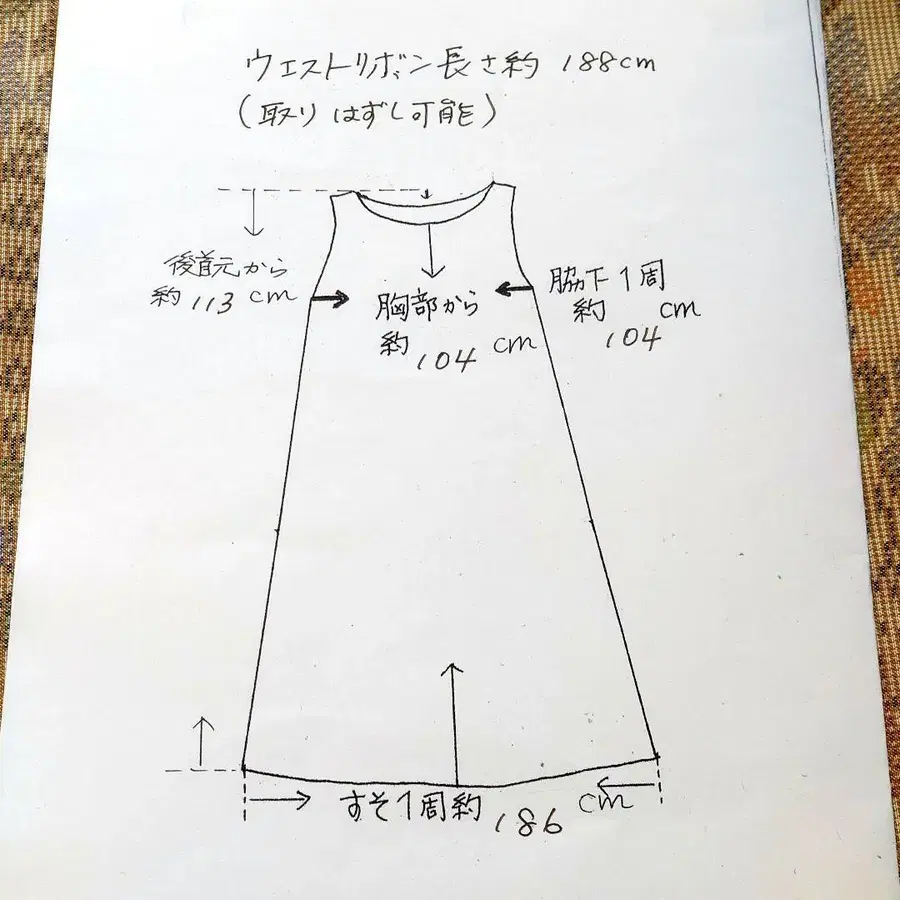 ウエストリボン長さ約 188cm
(取りはずし可能)
後首元から
約 113 cm
胸部から
約 104 cm
脇下1周
約 104 cm
すそ1周約 186 cm